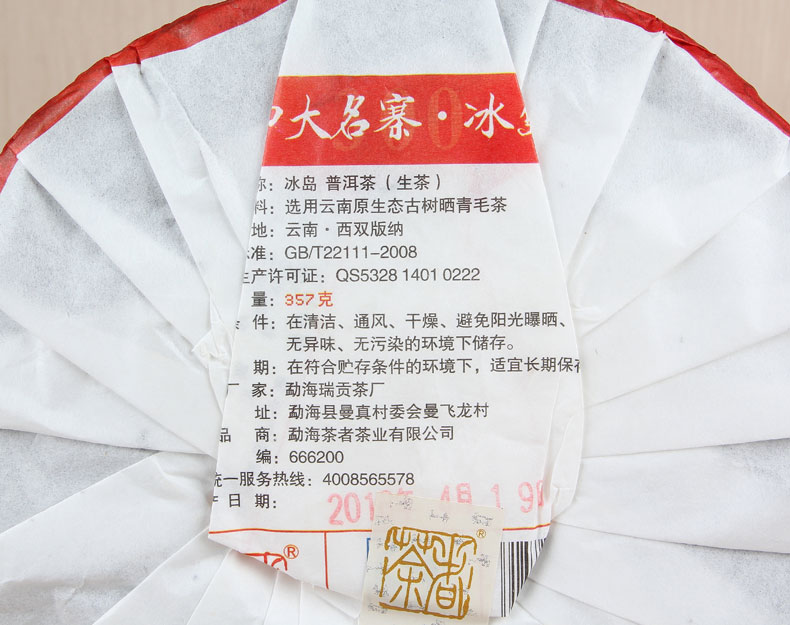 大名寨·冰
称：冰岛 普洱茶（生茶）
料：选用云南原生态古树晒青毛茶
地：云南·西双版纳
准：GB/T22111-2008
生产许可证：QS5328 1401 0222
量：357克
条 件：在清洁、通风、干燥、避免阳光曝晒、
无异味、无污染的环境下储存。
期：在符合贮存条件的环境下，适宜长期保存
厂 家：勐海瑞贡茶厂
址：勐海县曼真村委会曼飞龙村
品 商：勐海茶者茶业有限公司
编：666200
统一服务热线：4008565578
产日期：
4月19
®
®
茶者